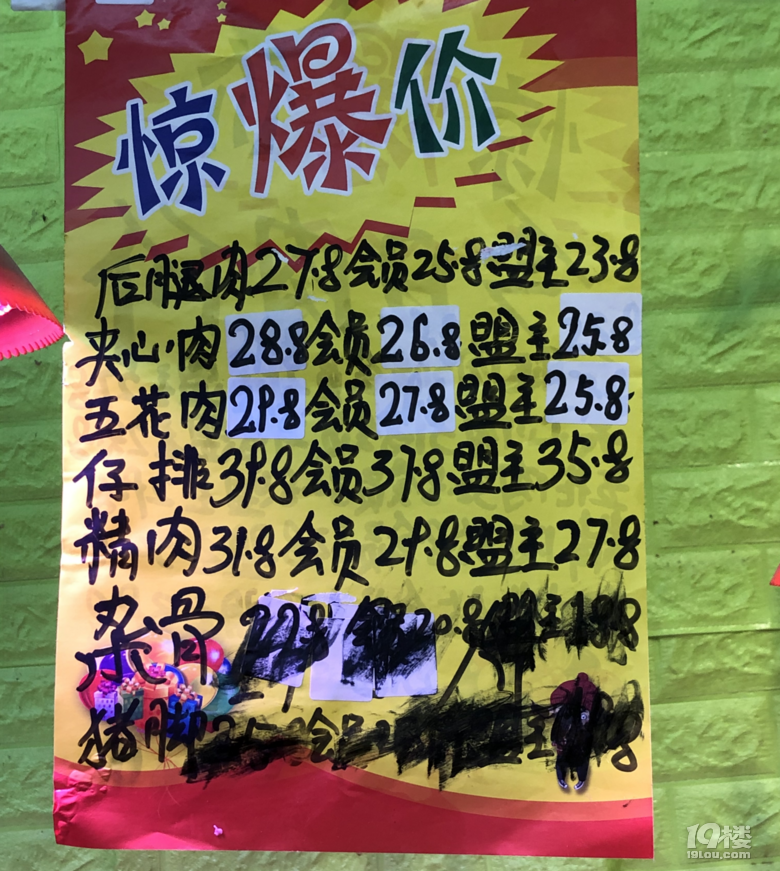 惊爆价
后腿肉27.8会员25.8盟主23.8
夹心肉28.8会员26.8盟主25.8
五花肉29.8会员27.8盟主25.8
仔排39.8会员37.8盟主35.8
精肉31.8会员29.8盟主27.8
杂骨
猪脚 会员 盟主
19楼
19lou.com